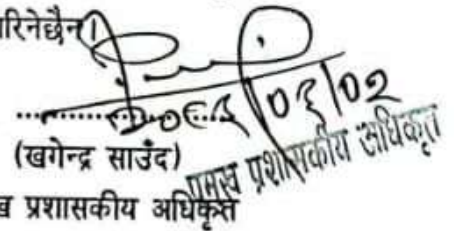 रिनेछैन।
(खगेन्द्र साउँद)
प्रमुख प्रशासकीय अधिकृत
ख प्रशासकीय अधिकृत